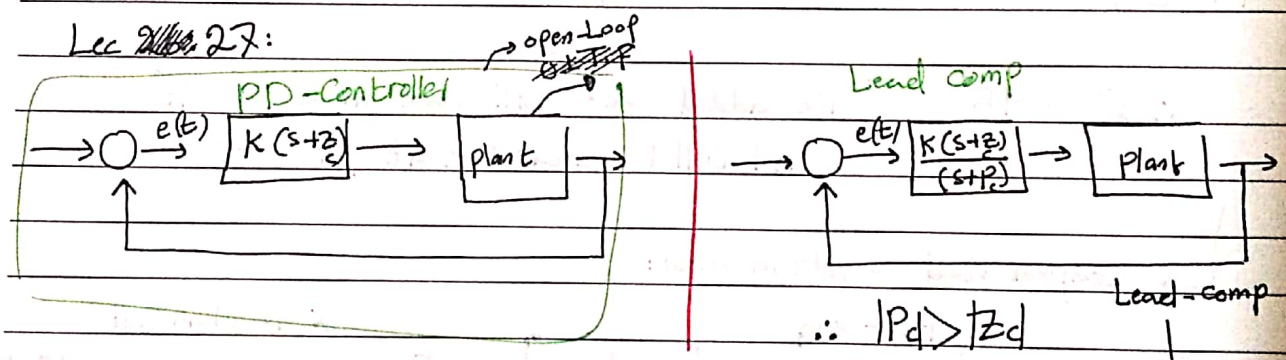 Lec 27:
open-Loop
PD-Controller
e(t)
K(s+Zc)
plant
Lead comp
e(t)
K(s+Zc)
(s+Pc)
Plant
Lead-comp
∴ |Pc|>|Zc|